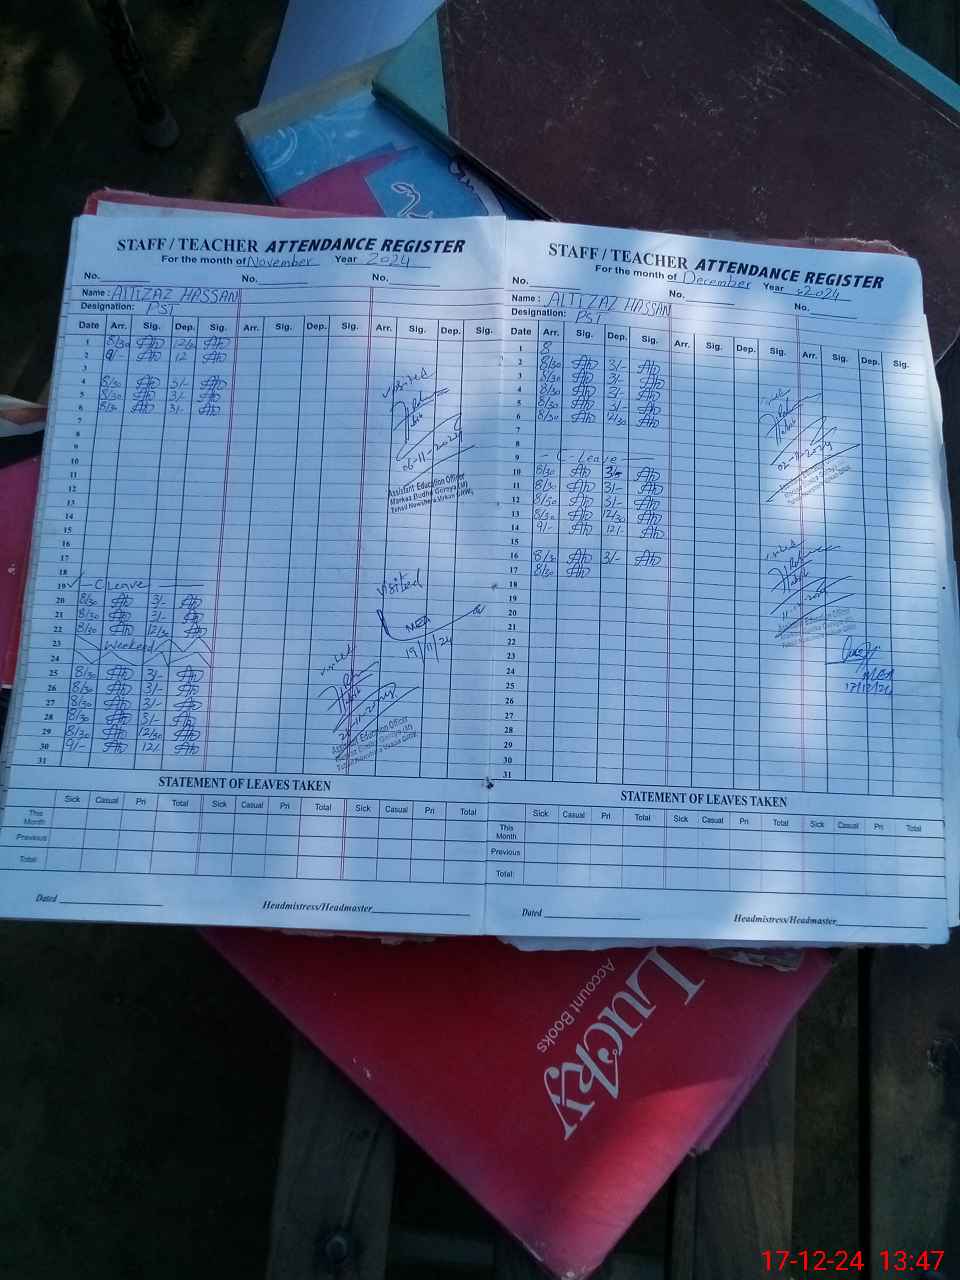 STAFF / TEACHER ATTENDANCE REGISTER
For the month of November Year 2024
No. No. No.
Name: AITIZAZ HASSAN
Designation: PST
Date Arr. Sig. Dep. Sig. Arr. Sig. Dep. Sig. Arr. Sig. Dep. Sig.
1 8/30 12/30
2 9/- 12
3
4 8/30 3/-
5 8/30 3/-
6 8/30 3/-
7
8
9
10
11
12
13
14
15
16
17
18
19 C Leave
20 8/30 3/-
21 8/30 3/-
22 8/30 12/30
23 Weekend
24
25 8/30 3/-
26 8/30 3/-
27 8/30 3/-
28 8/30 3/-
29 8/30 12/30
30 9/- 12/-
31
visited
06-11-2024
Assistant Education Officer
visited
MEA
19/11/24
visited
Assistant Education Officer
STATEMENT OF LEAVES TAKEN
Sick Casual Pri Total Sick Casual Pri Total Sick Casual Pri Total
This Month
Previous
Total:
Dated
Headmistress/Headmaster
STAFF / TEACHER ATTENDANCE REGISTER
For the month of December Year 2024
No. No. No.
Name: AITIZAZ HASSAN
Designation: PST
Date Arr. Sig. Dep. Sig. Arr. Sig. Dep. Sig. Arr. Sig. Dep. Sig.
1 8
2 8/30 3/-
3 8/30 3/-
4 8/30 3/-
5 8/30 3/-
6 8/30 12/30
7
8
9 C-Leave
10 8/30
11 8/30 3/-
12 8/30 3/-
13 8/30 12/30
14 9/- 12/-
15
16 8/30 3/-
17 8/30
18
19
20
21
22
23
24
25
26
27
28
29
30
31
visited
visited
MEA
17/12/24
STATEMENT OF LEAVES TAKEN
Sick Casual Pri Total Sick Casual Pri Total Sick Casual Pri Total
This Month
Previous
Total:
Dated
Headmistress/Headmaster
Lucky
Account Books
17-12-24 13:47